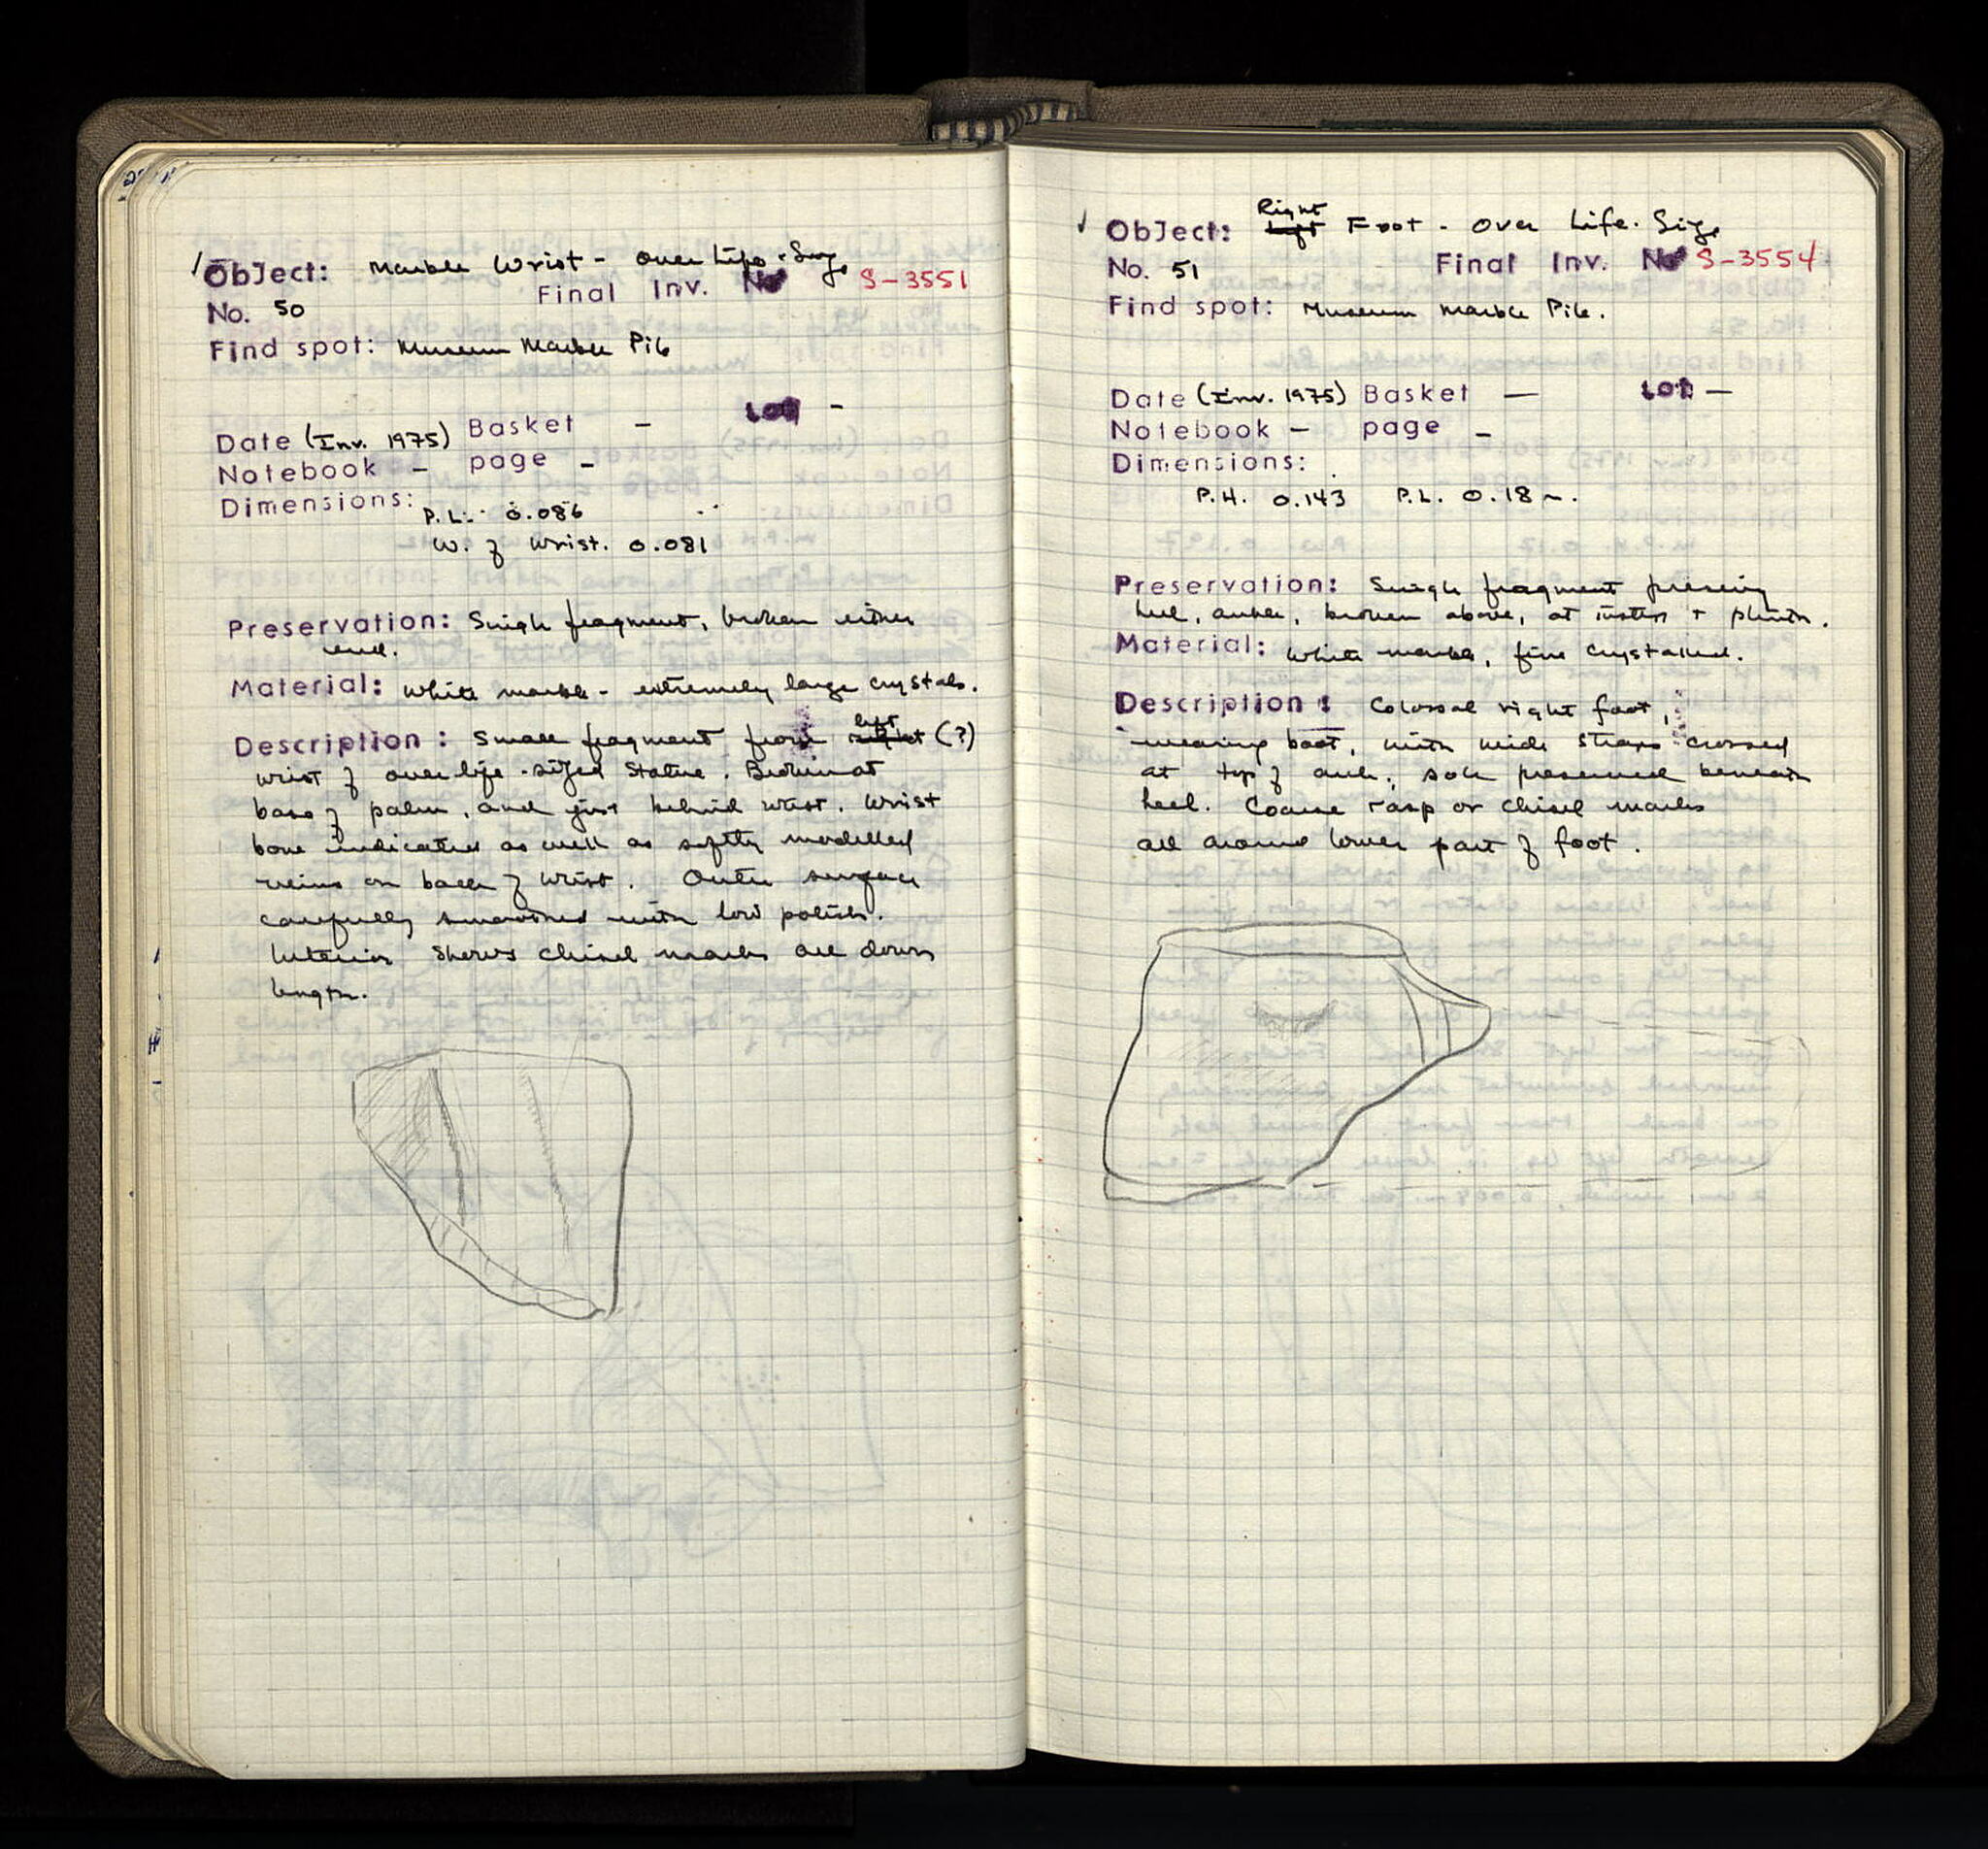 Object: Marble Wrist - Over Life-Size
Final Inv. No S-3551
No. 50
Find spot: Museum Marble Pile
Date (Inv. 1975) Basket - Lot -
Notebook - page -
Dimensions:
P.L. 0.086
W. of Wrist. 0.081
Preservation: Single fragment, broken either
end.
Material: White marble - extremely large crystals.
Description: Small fragment from right left (?)
wrist of over life-sized statue. Broken at
base of palm, and just behind wrist. Wrist
bone indicated as well as softly modelled
veins on back of wrist. Outer surface
carefully smoothed with low polish.
Interior shows chisel marks all down
length.
Object: Left Right Foot - Over Life-Size
No. 51 Final Inv. No S-3554
Find spot: Museum Marble Pile.
Date (Inv. 1975) Basket — Lot —
Notebook - page -
Dimensions:
P.H. 0.143 P.L. 0.18
Preservation: Single fragment preserving
heel, ankle, broken above, at instep + plinth.
Material: White marble, fine crystalled.
Description: Colossal right foot,
wearing boot, with wide straps crossed
at top of ankle; sole preserved beneath
heel. Coarse rasp or chisel marks
all around lower part of foot.